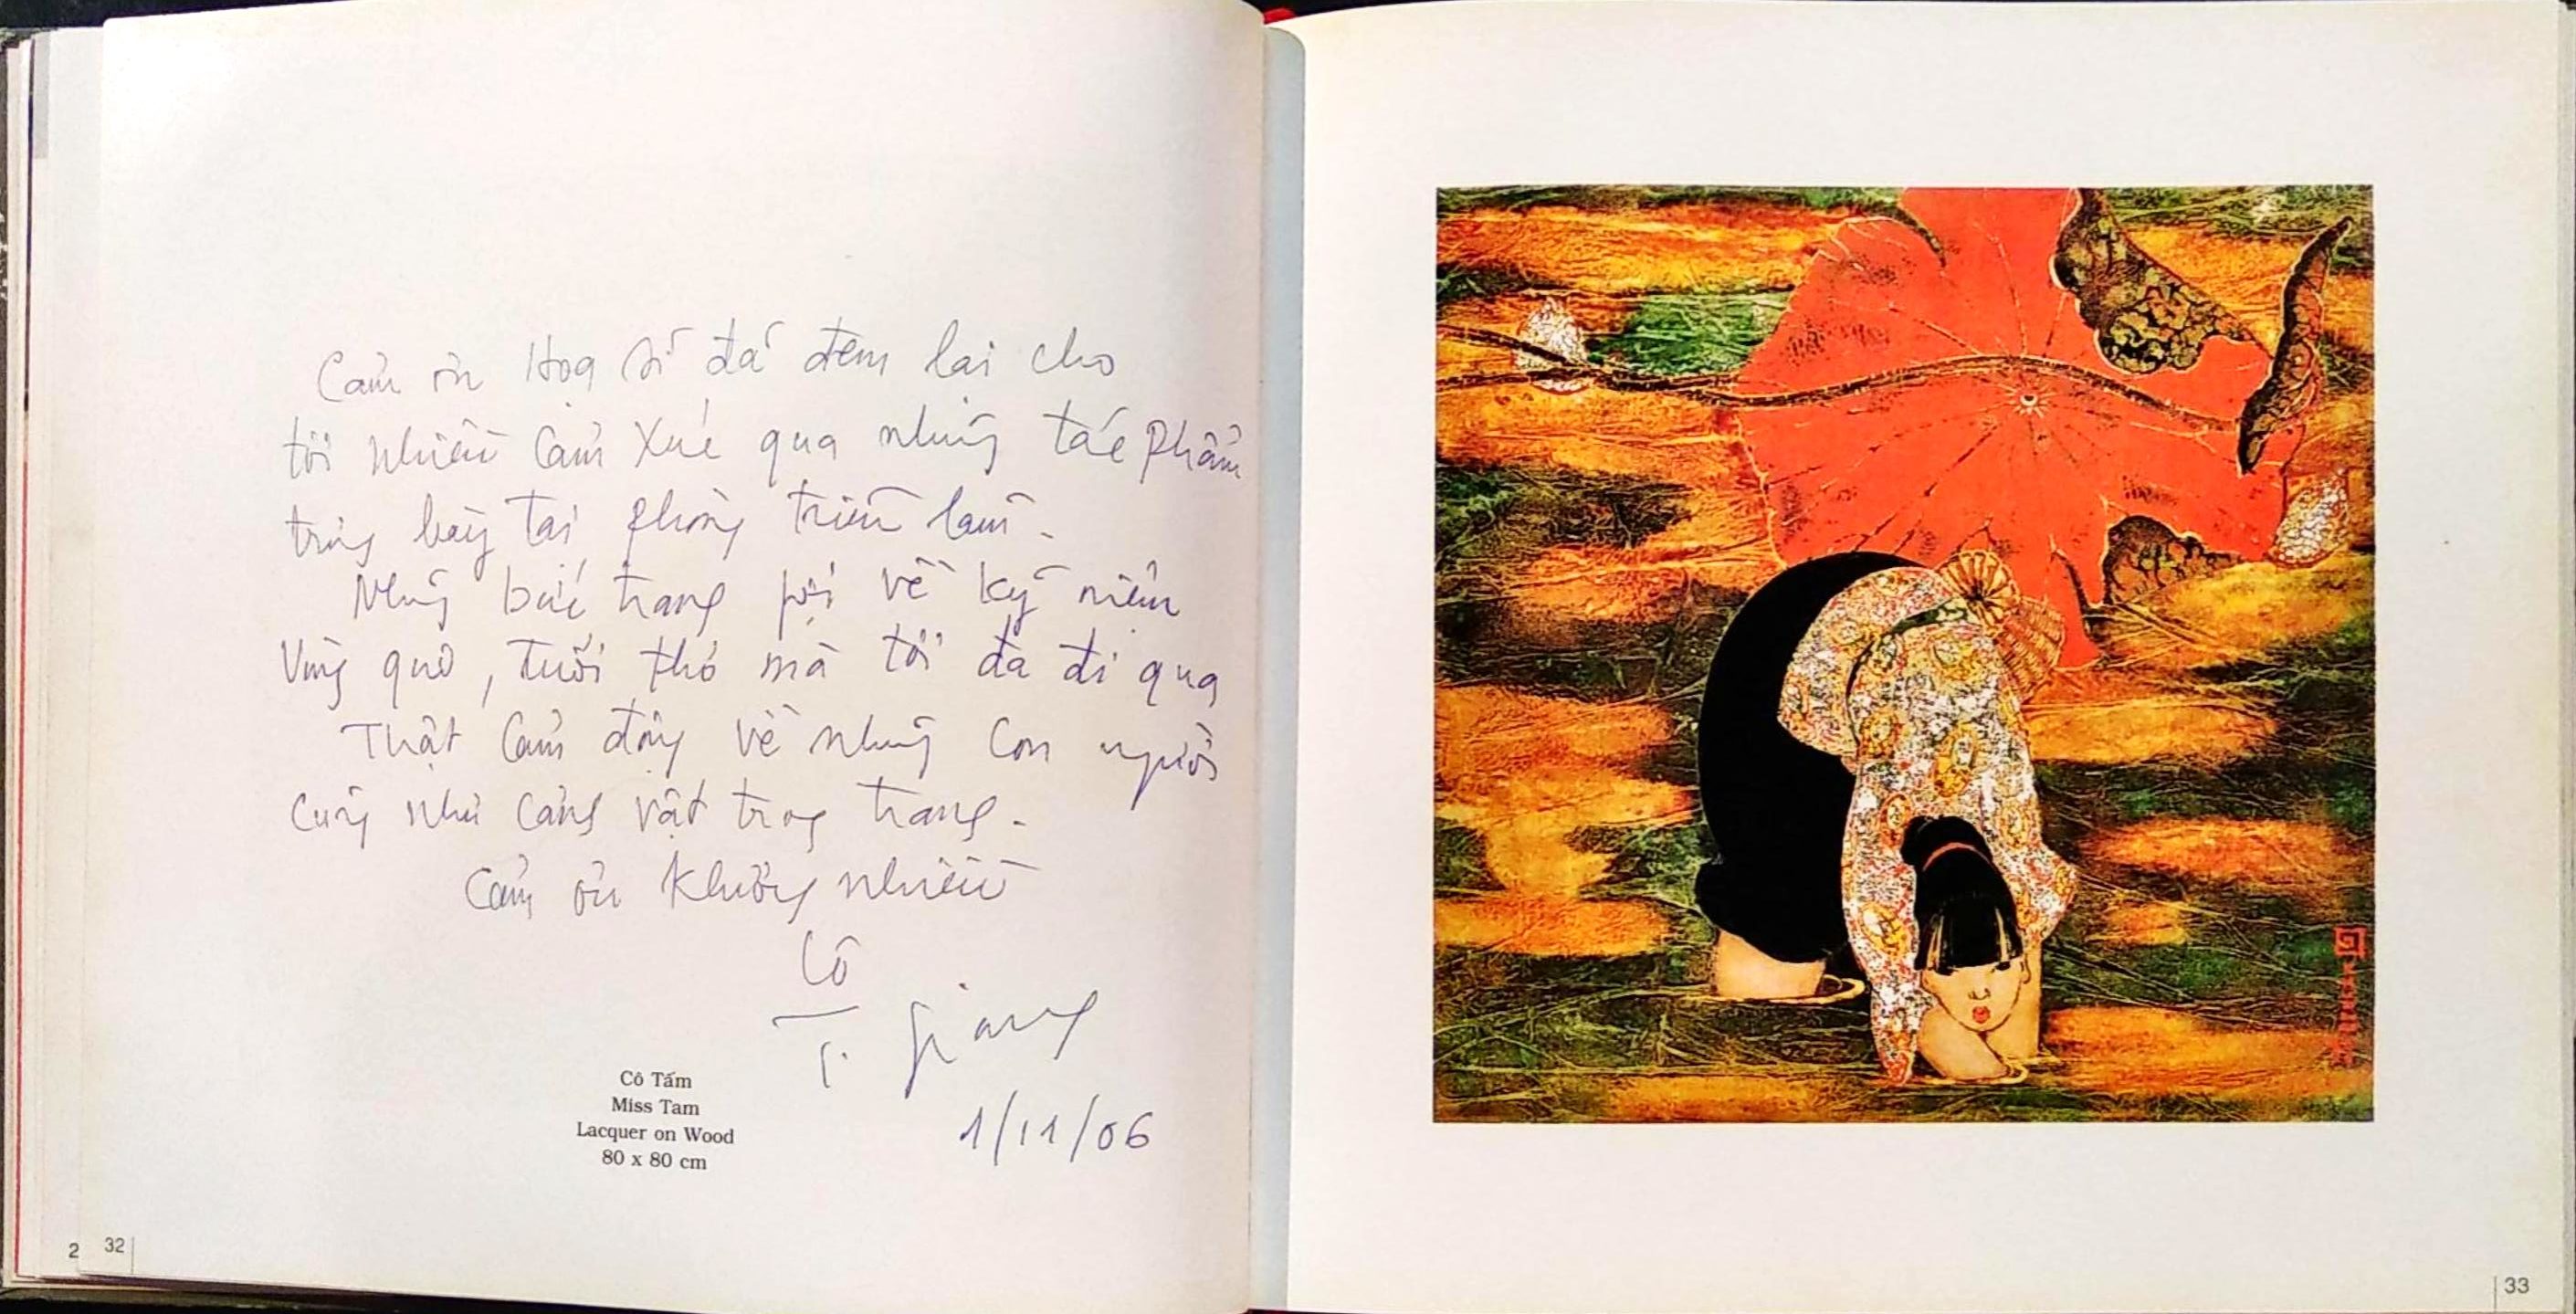 Cảm ơn Họa sĩ đã đem lại cho
tôi nhiều cảm xúc qua những tác phẩm
trưng bày tại phòng triển lãm.
Những bức tranh gợi về ký niệm
Vùng quê, tuổi thơ mà tôi đã đi qua
Thật cảm động về những con người
cũng như cảnh vật trong tranh.
Cảm ơn không nhiều
Cô
Giang
1/11/06
Cô Tấm
Miss Tam
Lacquer on Wood
80 x 80 cm
2
32
33